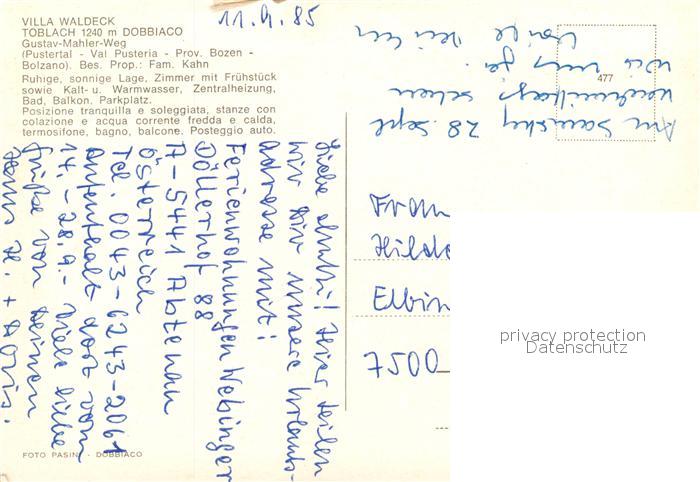 VILLA WALDECK
TOBLACH 1240 m DOBBIACO
Gustav-Mahler-Weg
(Pustertal - Val Pusteria - Prov. Bozen -
Bolzano). Bes. Prop.: Fam. Kahn
Ruhige, sonnige Lage, Zimmer mit Frühstück
sowie Kalt- u. Warmwasser, Zentralheizung,
Bad, Balkon. Parkplatz.
Posizione tranquilla e soleggiata, stanze con
colazione e acqua corrente fredda e calda,
termosifone, bagno, balcone. Posteggio auto.
11.9.85
Liebe Mutti! Hier teilen
wir Dir unsere Urlaubs-
adresse mit:
Ferienwohnungen Webinger
Döllerhof 88
A-5441 Abtenau
Österreich
Tel. 0043-6243-2061
Aufenthalt dort vom
14.-28.9.- Viele liebe
Grüße von Deinen
H. + Doris.
Am Samstag 28. Sept.
nachmittags sehen
wir uns ja.
477
Frau
Hilde
Elbin
7500
privacy protection
Datenschutz
FOTO PASINI - DOBBIACO